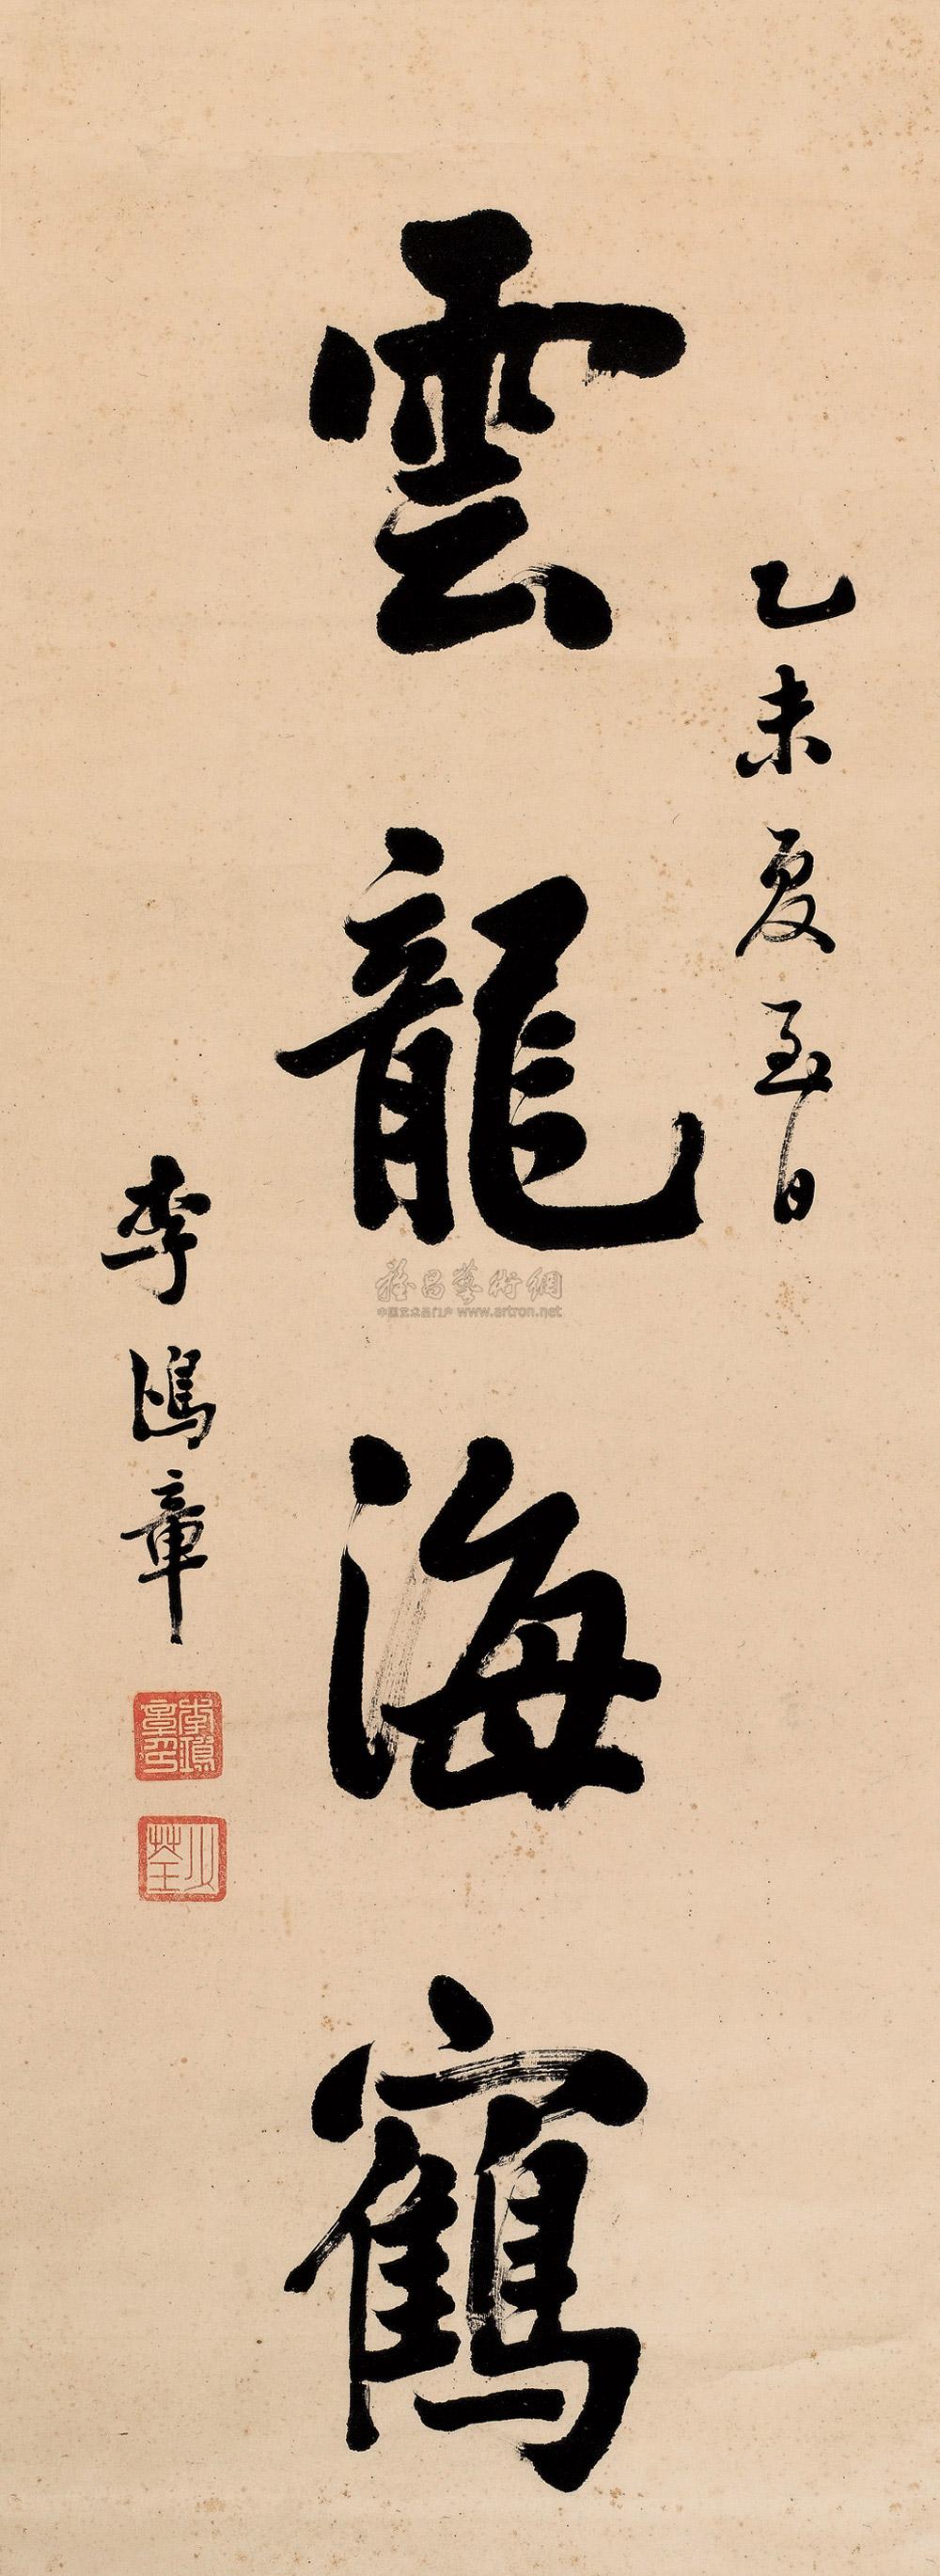 乙未夏至日
雲龍海鶴
李鴻章
李鴻章印
少荃
雅昌藝術網
中国艺术品门户 www.artron.net